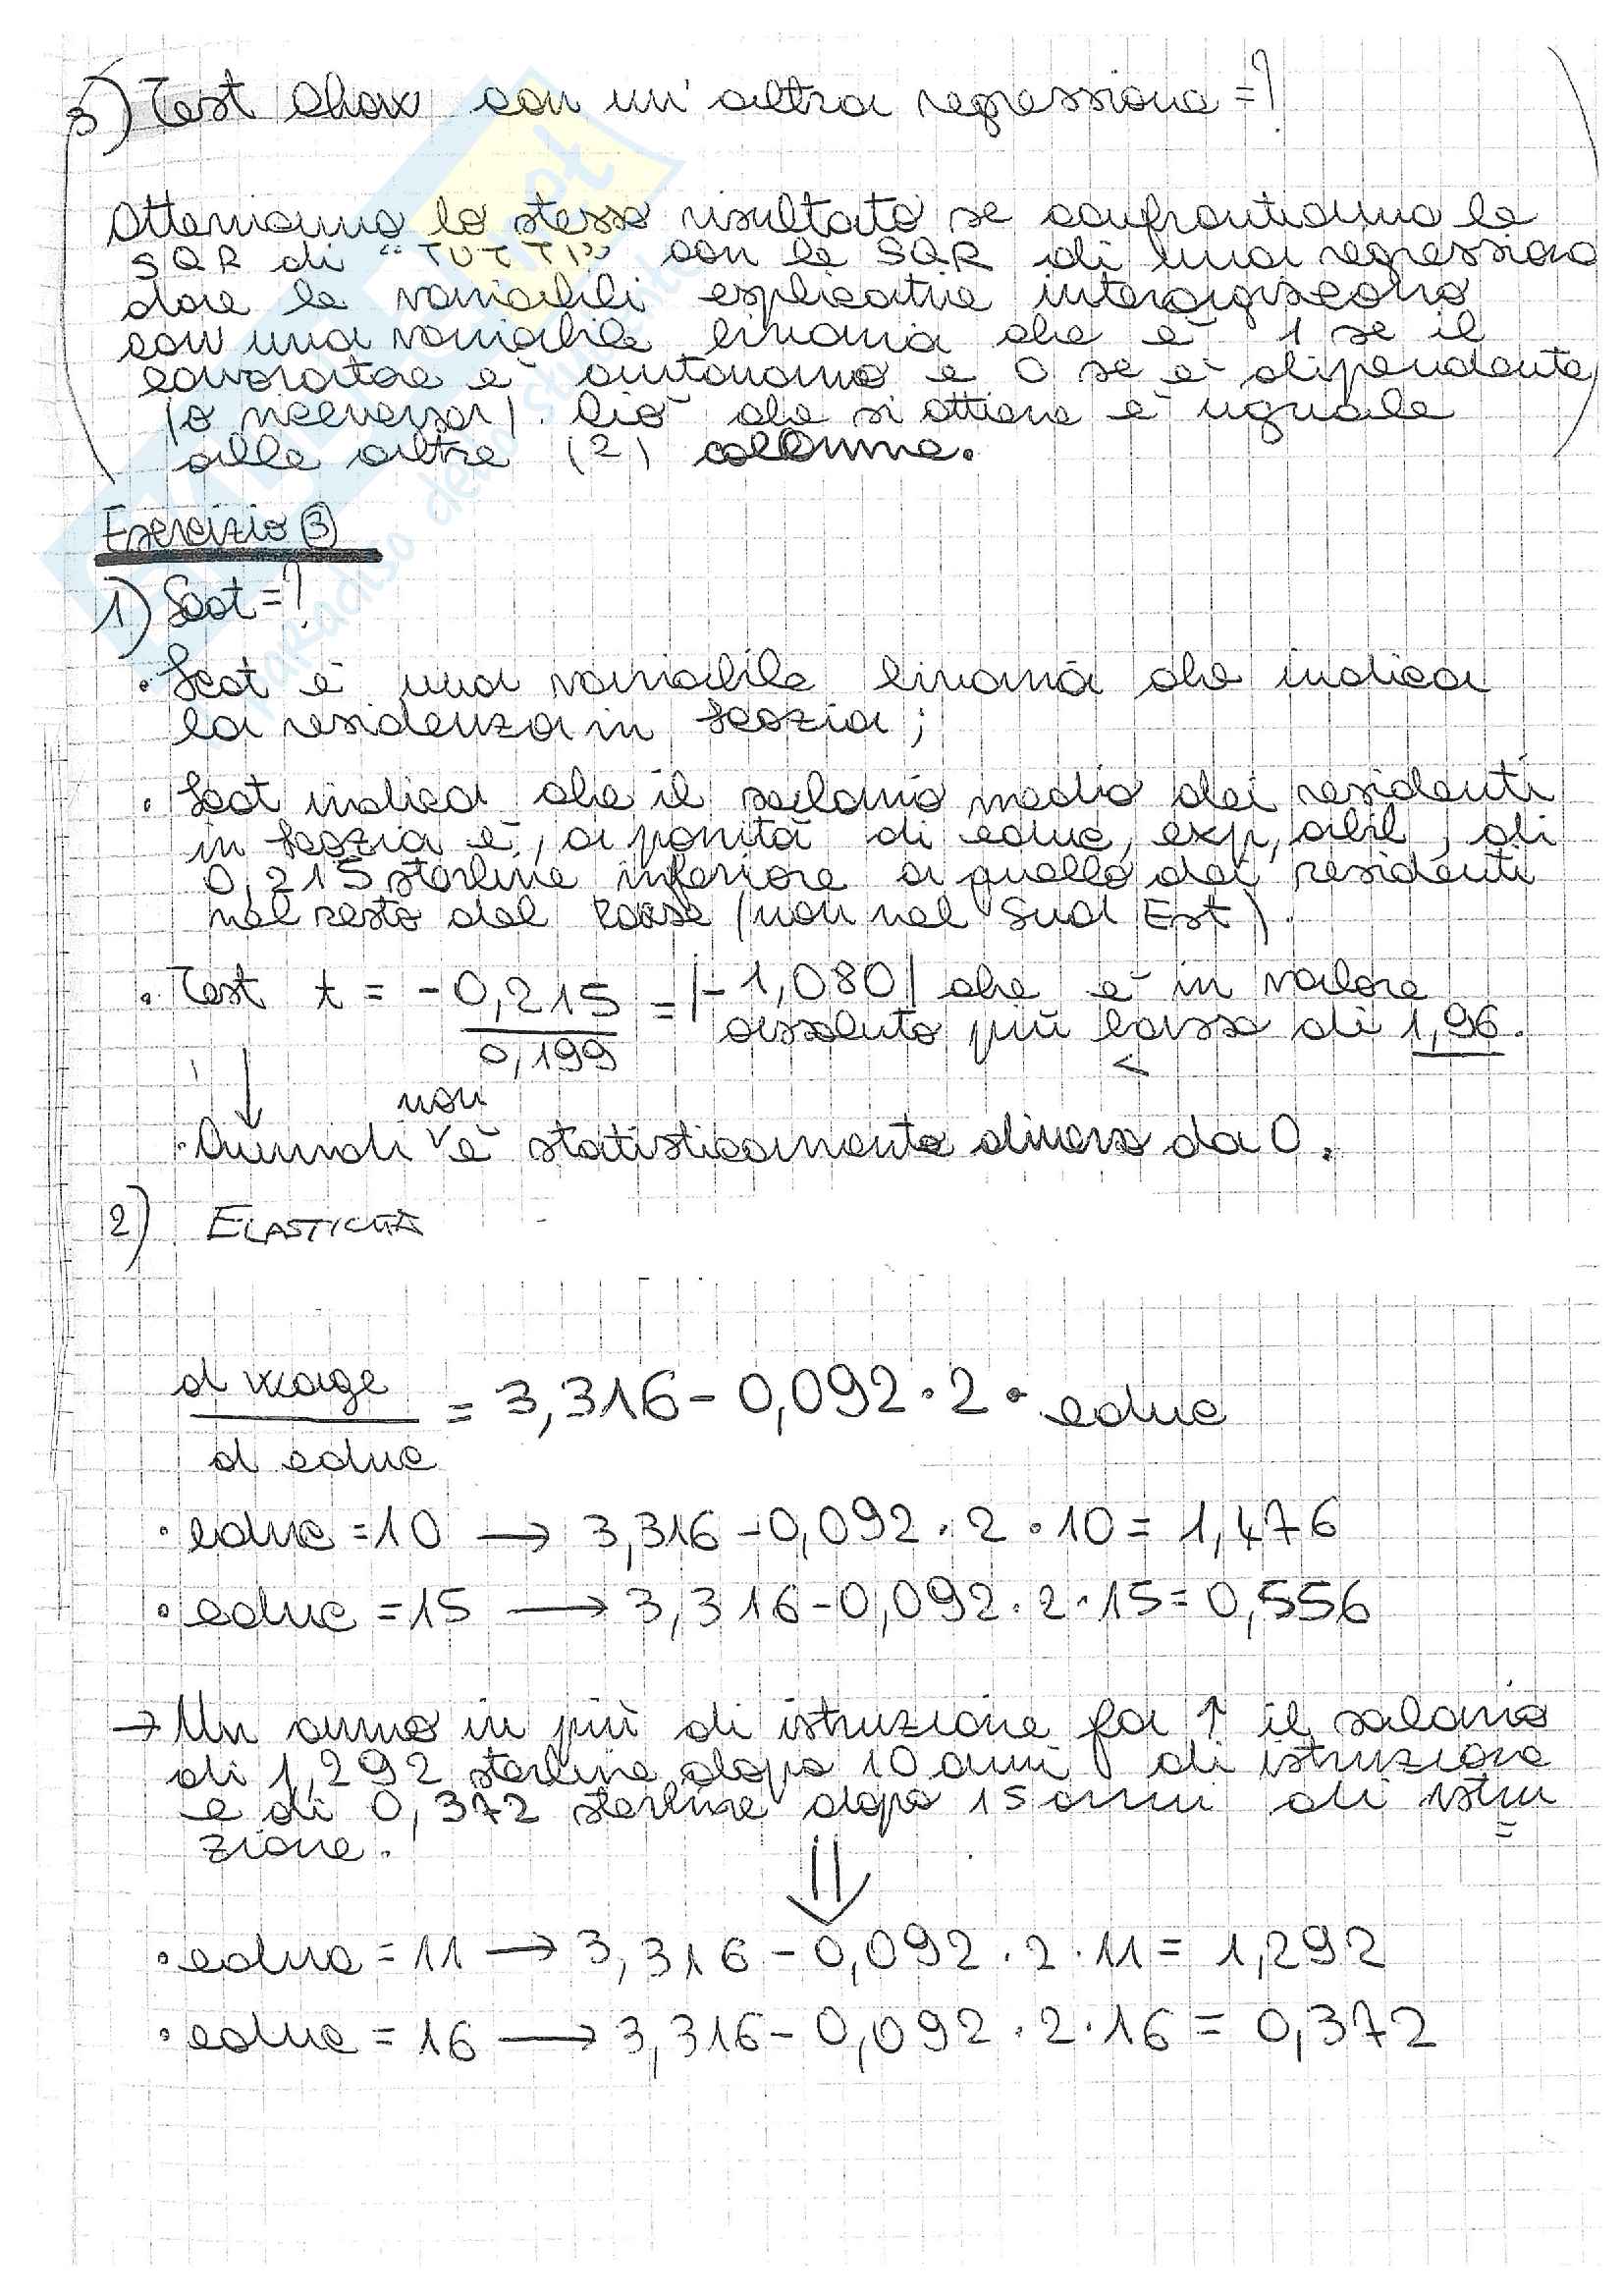 3) Test Chow con un'altra regressione =?
Otteniamo lo stesso risultato se confrontiamo le
SQR di "TUTTI" con le SQR di una regressione
dove le variabili esplicative interagiscono
con una variabile binaria che è 1 se il
lavoratore è autonomo e 0 se è dipendente
(o viceversa). Ciò che si ottiene è uguale
alle altre (2) colonne.
Esercizio 3
1) Scot =?
• Scot è una variabile binaria che indica
la residenza in Scozia;
• Scot indica che il salario medio dei residenti
in Scozia è, a parità di educ, exp, abil, di
0,215 sterline inferiore a quello dei residenti
nel resto del Paese (non nel Sud Est).
• Test t = -0,215 / 0,199 = |-1,080| che è in valore
assoluto più basso di 1,96.
<
↓
non
• Quindi è statisticamente diverso da 0.
2) ELASTICITÀ
d wage / d educ = 3,316 - 0,092 • 2 • educ
• educ = 10 → 3,316 - 0,092 • 2 • 10 = 1,476
• educ = 15 → 3,316 - 0,092 • 2 • 15 = 0,556
→ Un anno in più di istruzione fa ↑ il salario
di 1,292 sterline dopo 10 anni di istruzione
e di 0,372 sterline dopo 15 anni di istru
zione.
⇓
• educ = 11 → 3,316 - 0,092 • 2 • 11 = 1,292
• educ = 16 → 3,316 - 0,092 • 2 • 16 = 0,372